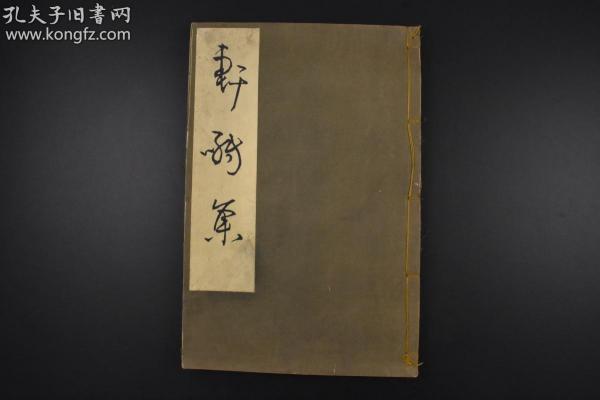 孔夫子旧书网
www.kongfz.com
軒 集